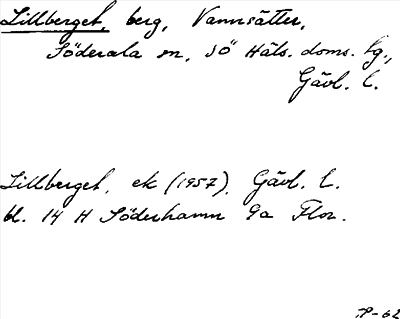 Lillberget, berg, Vannsätter,
Söderala sn, SÖ Häls. doms. tg.,
Gävl. l.
Lillberget, ek (1957), Gävl. l.
bl. 14 H Söderhamn 9a Flor.
-62